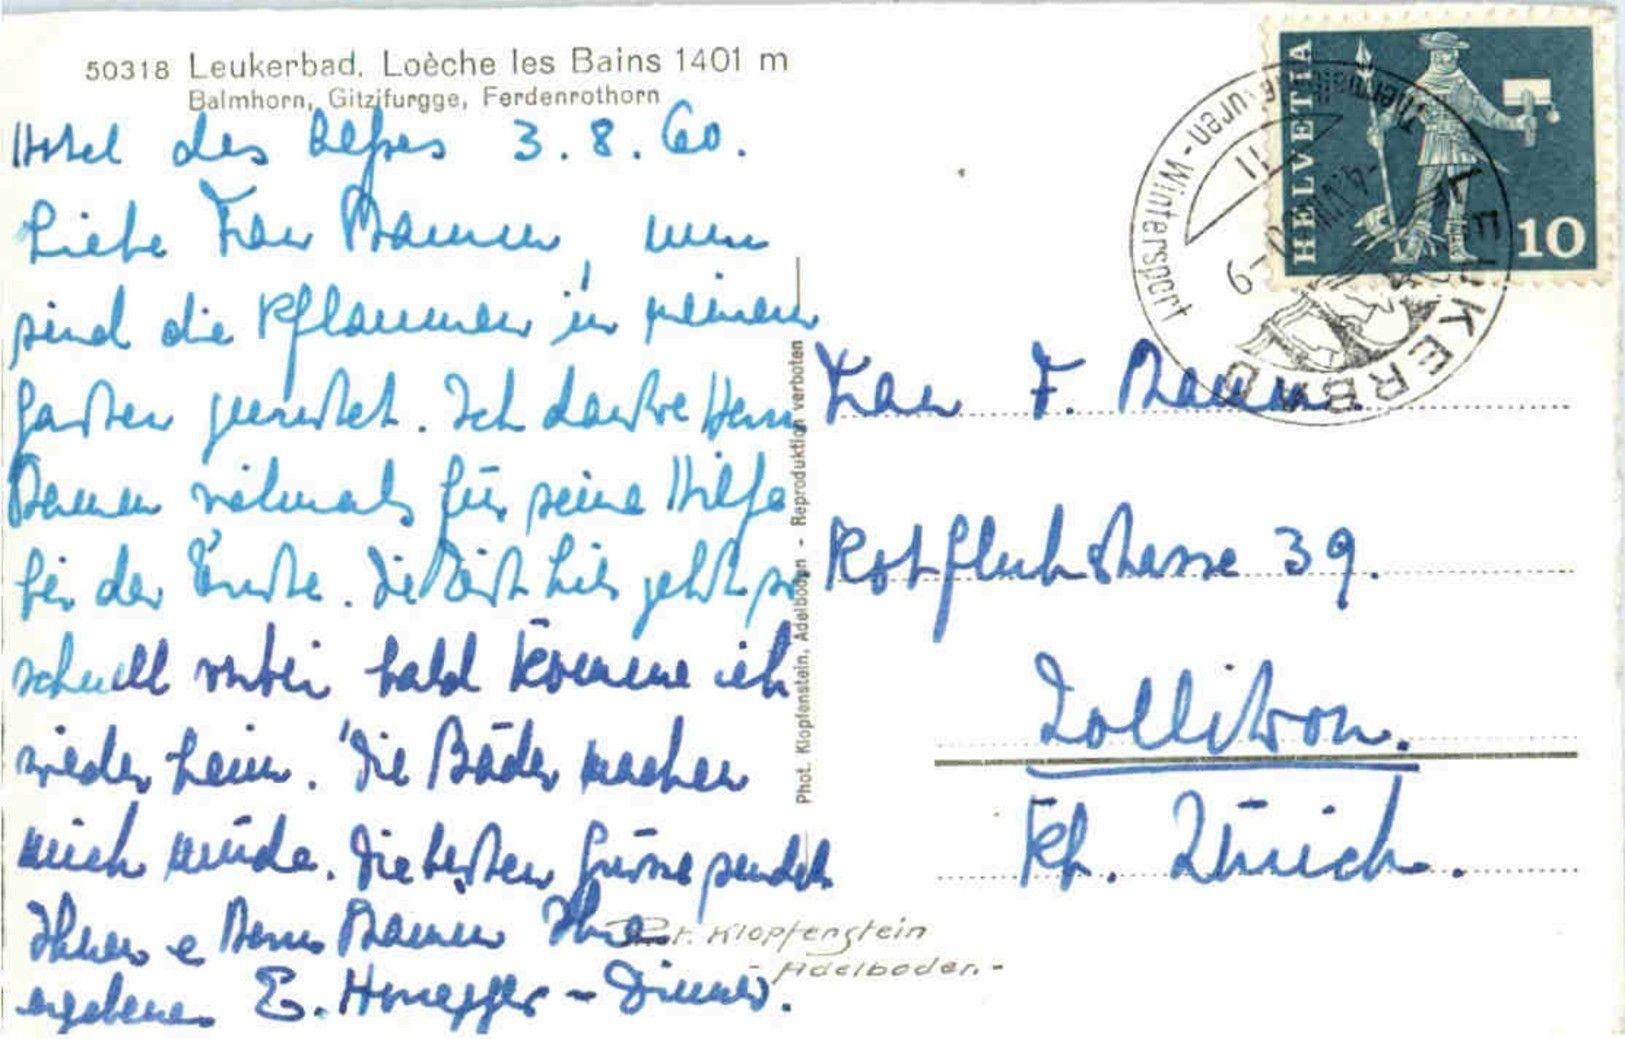 50318 Leukerbad, Loèche les Bains 1401 m
Balmhorn, Gitzifurgge, Ferdenrothorn
Hotel des Alpes 3.8.60.
Liebe Frau Baumann, nun
sind die Pflaumen in meinem
Garten gerettet. Ich danke Herrn
Baumann vielmals für seine Hilfe
bei der Ernte. Die Zeit hier geht so
schnell vorbei bald komme ich
wieder heim. Die Bäder machen
mich müde. Die besten Grüsse sendet
Ihnen e Herrn Baumann Ihre
ergebene E. Honegger-
Phot. Klopfenstein, Adelboden - Reproduktion verboten
Phot. Klopfenstein
Adelboden.-
HELVETIA
10
LEUKERBAD
Thermalkuren-Wintersport
Frau F. Baumann
Rotfluhstrasse 39.
Zollikon.
Kt. Zürich.